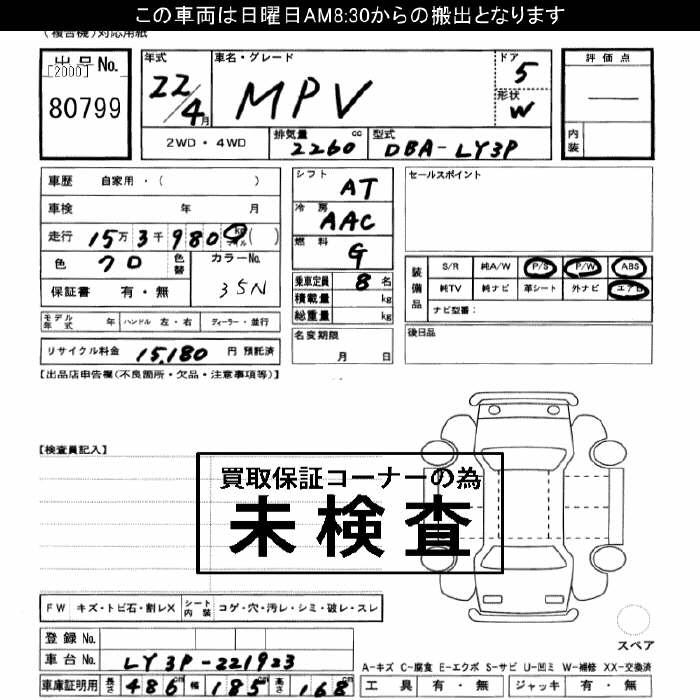 この車両は日曜日AM8:30からの搬出となります
(複合機)対応用紙
出品No. [2000]
80799
年式 22/4月
車名・グレード MPV
ドア 5
形状 W
評価点 —
内装
2WD・4WD
排気量 2260 cc
型式 DBA-LY3P
車歴 自家用・( )
車検 年 月
走行 15万3千980 km マイル ( )
色 クロ 色替
カラーNo. 35N
保証書 有・無
シフト AT
冷房 AAC
燃料 G
乗車定員 8名
積載量 kg
総重量 kg
セールスポイント
装備品 S/R 純A/W P/S P/W ABS
純TV 純ナビ 革シート 外ナビ エアB
ナビ型番:
モデル年式 年 ハンドル 左・右 ディーラー・並行
名変期限 月 日
後日品
リサイクル料金 15,180 円 預託済
【出品店申告欄(不良箇所・欠品・注意事項等)】
【検査員記入】
買取保証コーナーの為
未検査
FW キズ・トビ石・割レX シート内装 コゲ・穴・汚レ・シミ・破レ・スレ
スペア
登録No.
車台No. LY3P-221923
A-キズ C-腐食 E-エクボ S-サビ U-凹ミ W-補修 XX-交換済
車庫証明用 長さ 486cm 幅 185cm 高さ 168cm
工具 有・無 ジャッキ 有・無